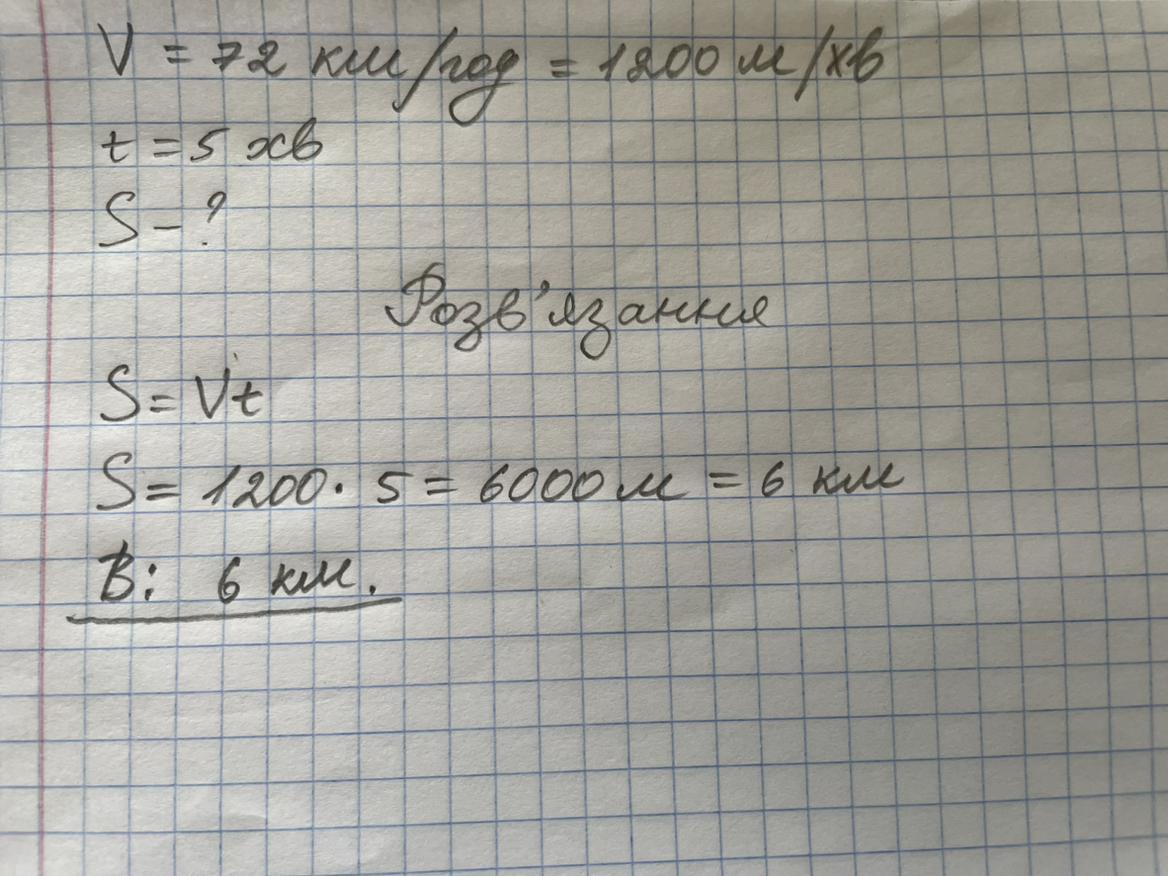 V = 72 км/год = 1200 м/хв
t = 5 хв
S - ?
Розв'язання
S = Vt
S = 1200 · 5 = 6000 м = 6 км
В: 6 км.